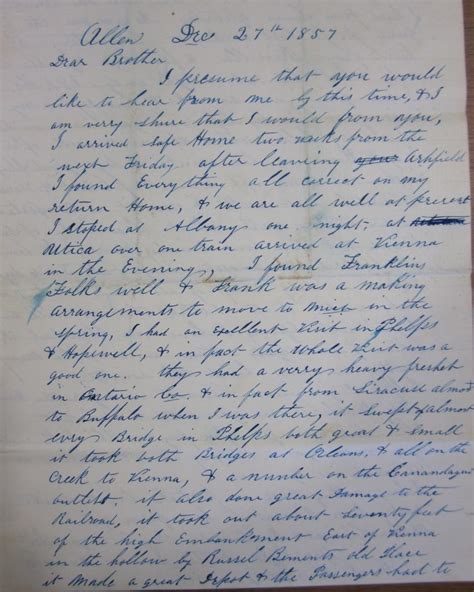 Allen Dec 27th 1857
Dear Brother
I presume that you would
like to hear from me by this time, & I
am verry shure that I would from you,
I arrived safe Home two weeks from the
next Friday after leaveing your Ashfield
I found Everything all correct on my
return Home, & we are all well at present
I stoped at Albany one night. at
Utica over one train arrived at Vienna
in the Evening, I found Franklins
Folks well & Frank was a making
arrangements to move to in the
spring, I had an Exellent visit in Phelps
& Hopewell, & in fact the whole visit was a
good one. they had a verry heavy freshet
in Ontario Co. & in fact from Siracuse almost
to Buffalo when I was there, it swept almost
evry Bridge in Phelps both great & small
it took both Bridges at Orleans, & all on the
Creek to Vienna, & a number on the Canandagua
outlet. it also done great Damage to the
Railroad, it took out about Seventy feet
of the high Embankment East of Vienna
in the hollow by Russel Bements old Place
it Made a great Depot & the Passengers had to